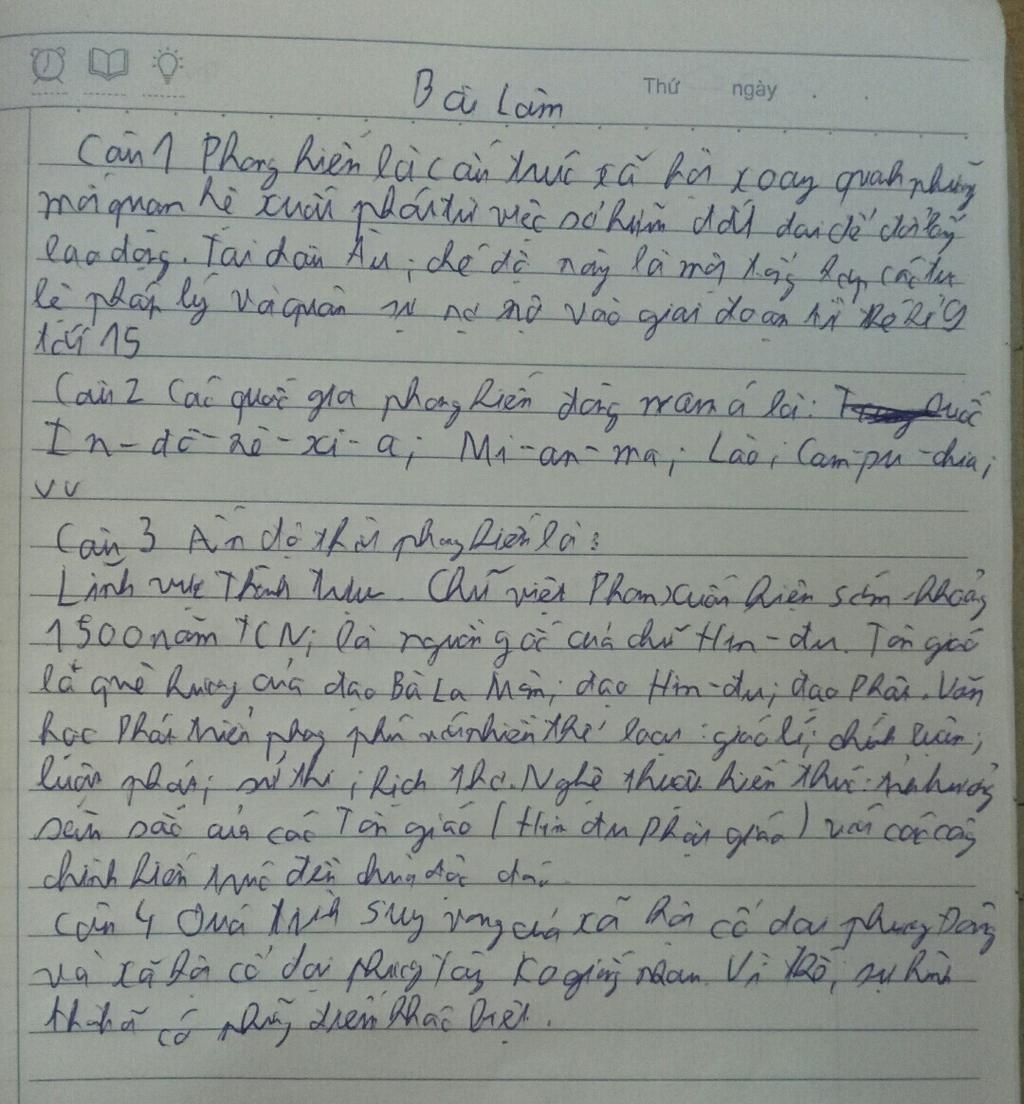 Thứ ngày
Bài Làm
Câu 1 Phong kiến là cấu trúc xã hội xoay quanh những
mối quan hệ xuất phát từ việc sở hữu đất đai để đổi lấy
lao động. Tại châu Âu, chế độ này là một tổng hợp các tục
lệ pháp lý và quân sự nở rộ vào giai đoạn từ thế kỉ 9
tới 15
Câu 2 Các quốc gia phong kiến đông nam á là:
In-đô-nê-xi-a; Mi-an-ma; Lào; Cam-pu-chia;
vv
Câu 3 Ấn độ thời phong kiến là:
Lĩnh vực Thành tựu. Chữ viết Phạn xuất hiện sớm khoảng
1500 năm TCN; là nguồn gốc của chữ Hin-đu. Tôn giáo
là quê hương của đạo Bà La Môn; đạo Hin-đu; đạo Phật. Văn
học Phát triển phong phú với nhiều thể loại: giáo lí; chính luận;
luật pháp; sử thi; kịch thơ. Nghệ thuật kiến trúc: ảnh hưởng
sâu sắc của các Tôn giáo (Hin đu Phật giáo) với các công
chình kiến trúc đền chùa độc đáo
Câu 4 Quá trình suy vong của xã hội cổ đại phương Đông
và xã hội cổ đại phương Tây Ko giống nhau. Vì thế, sự hình
thành có những điểm khác biệt.